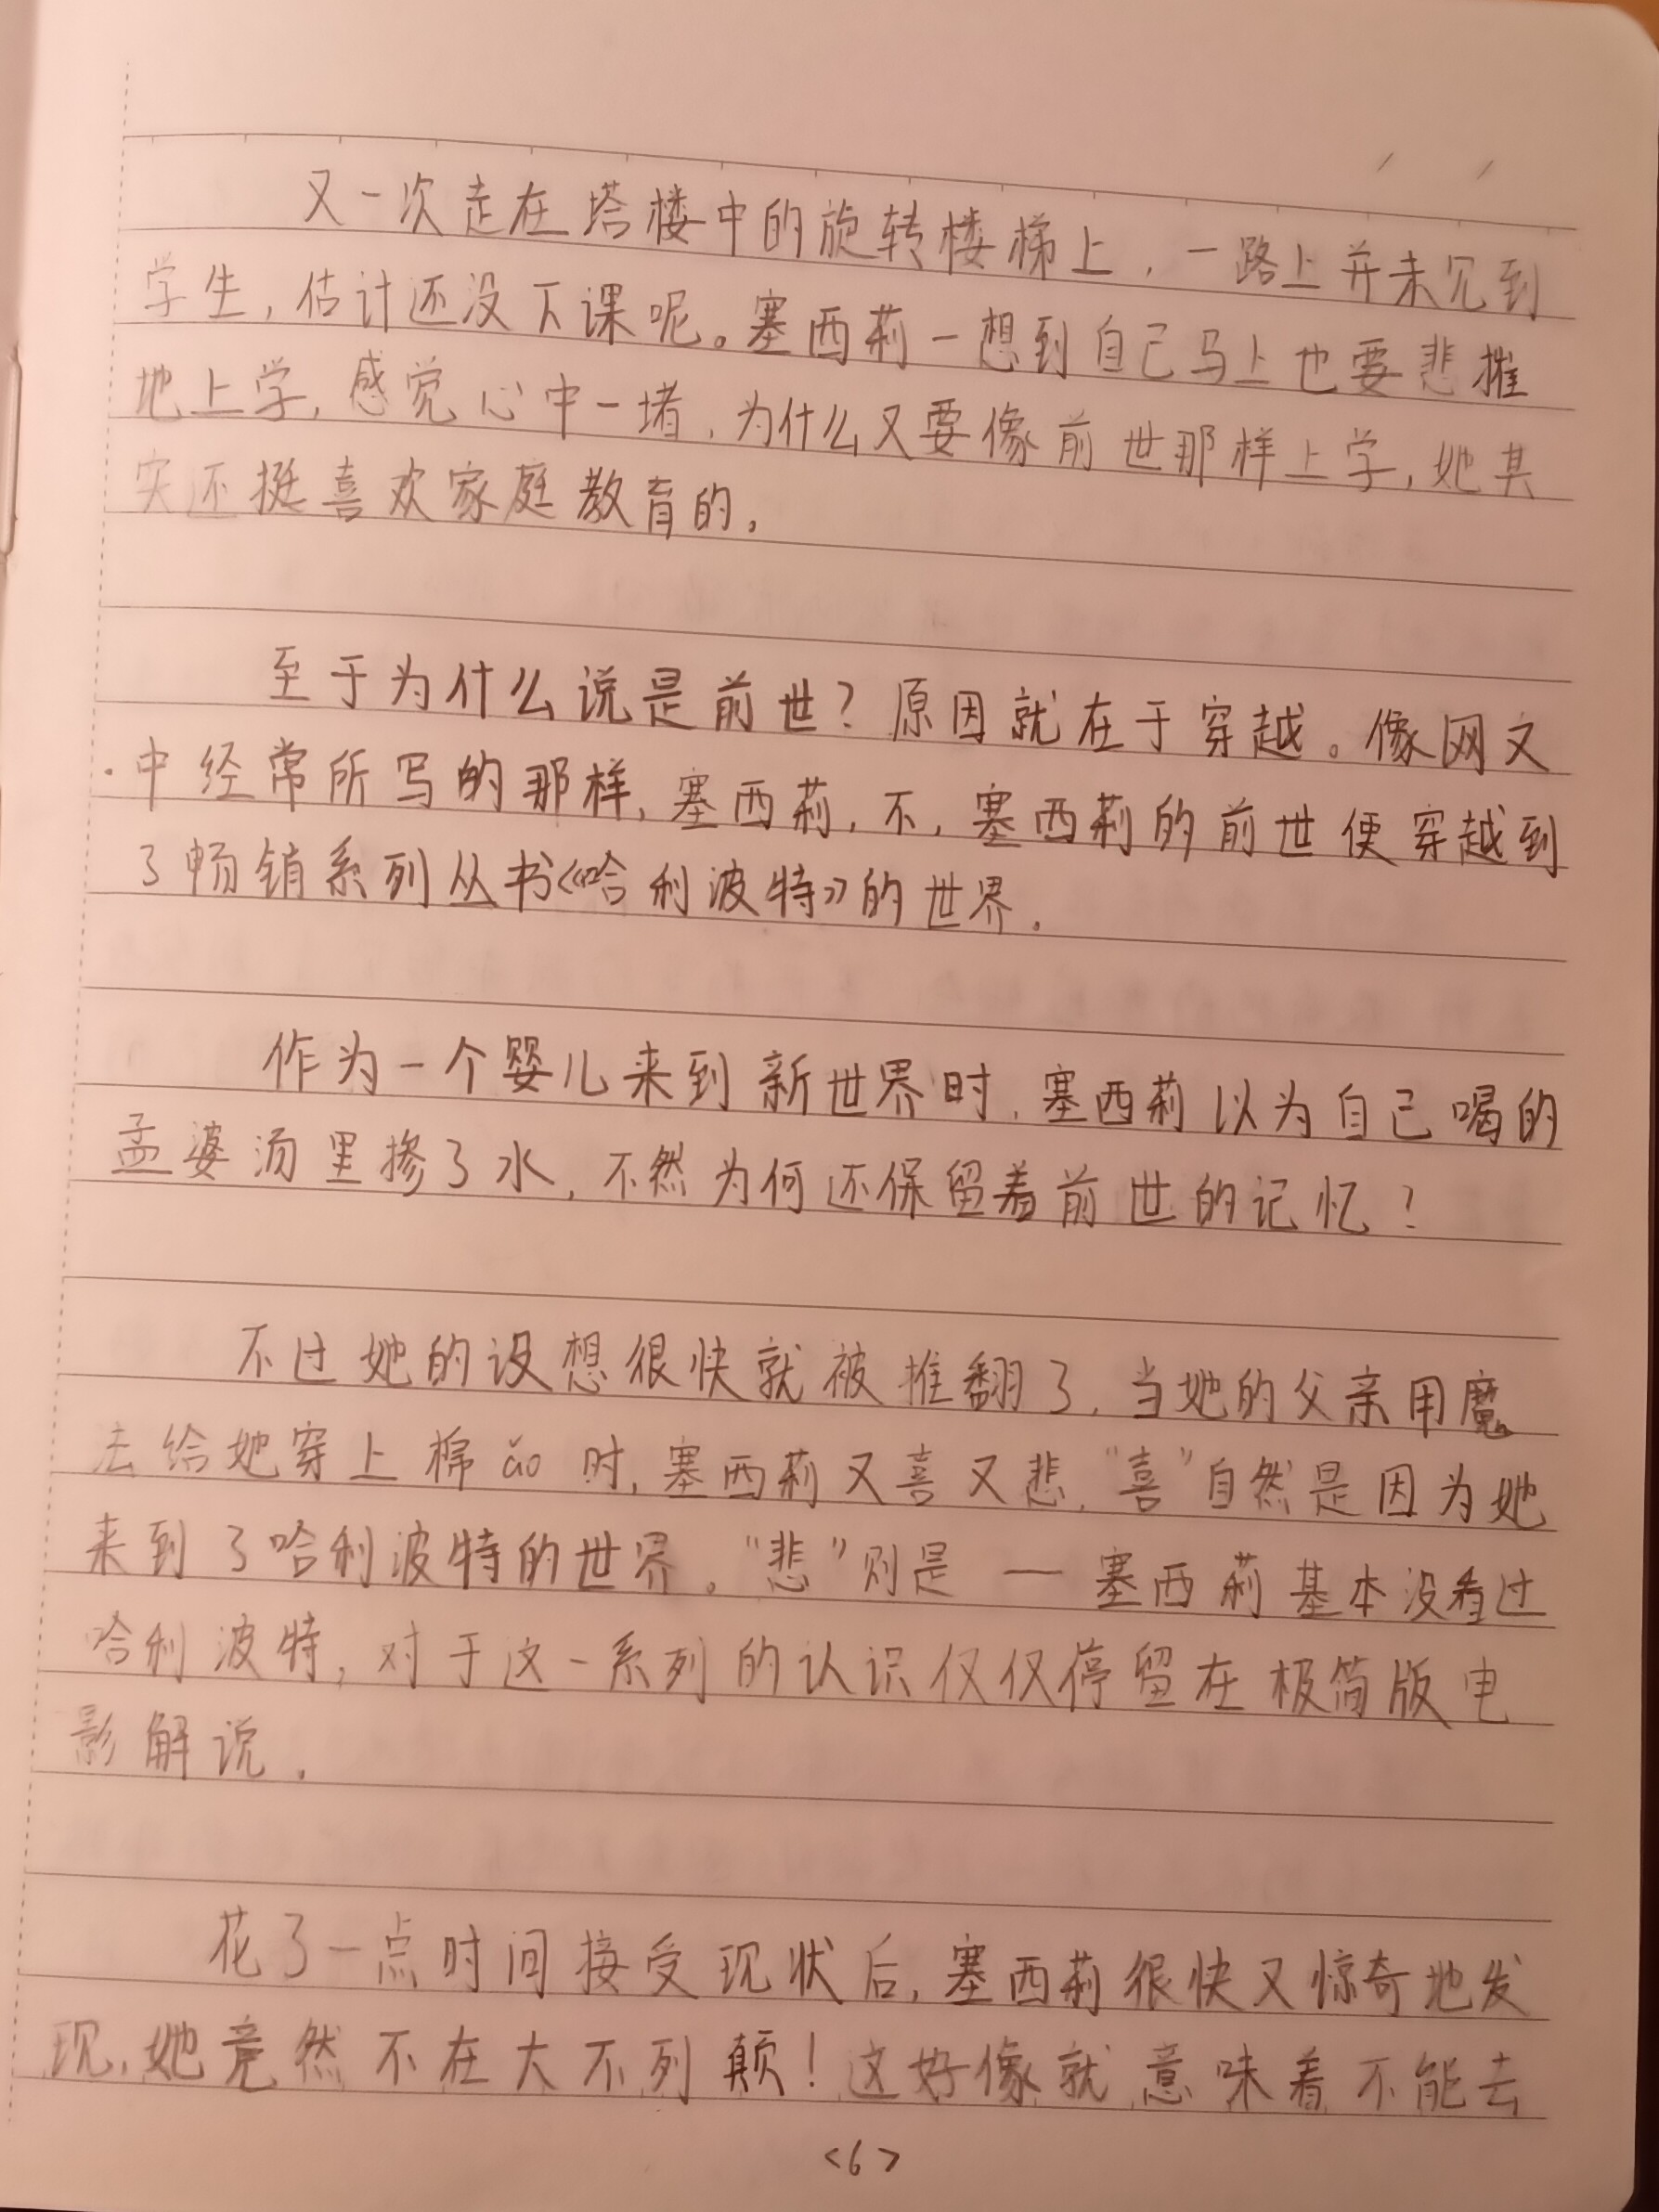 又一次走在塔楼中的旋转楼梯上，一路上并未见到
学生，估计还没下课呢。塞西莉一想到自己马上也要悲摧
地上学，感觉心中一堵，为什么又要像前世那样上学，她其
实还挺喜欢家庭教育的。
至于为什么说是前世？原因就在于穿越。像网文
中经常所写的那样，塞西莉，不，塞西莉的前世便穿越到
了畅销系列丛书《哈利波特》的世界。
作为一个婴儿来到新世界时，塞西莉以为自己喝的
孟婆汤里掺了水，不然为何还保留着前世的记忆？
不过她的设想很快就被推翻了，当她的父亲用魔
法给她穿上棉ǎo时，塞西莉又喜又悲，“喜”自然是因为她
来到了哈利波特的世界。“悲”则是 — 塞西莉基本没看过
哈利波特，对于这一系列的认识仅仅停留在极简版电
影解说。
花了一点时间接受现状后，塞西莉很快又惊奇地发
现，她竟然不在大不列颠！这好像就意味着不能去
<6>